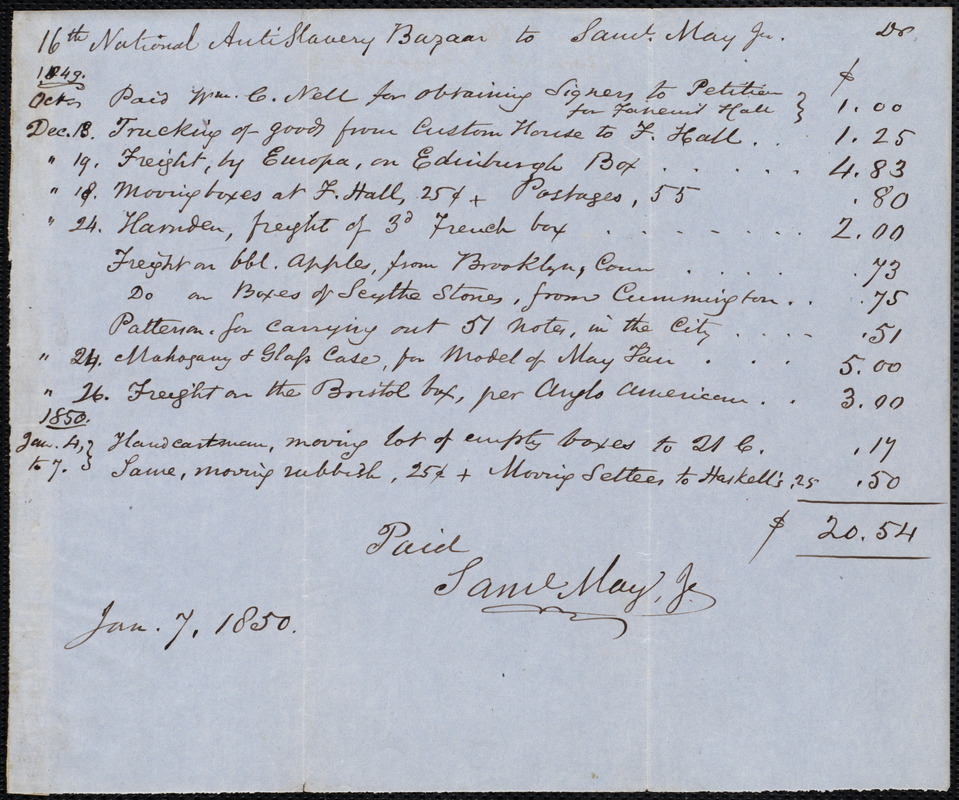 16th National AntiSlavery Bazaar to Saml. May Jr. Dr.
1849. $
Octr. Paid Wm. C. Nell for obtaining Signers to Petition
for Faneuil Hall } 1.00
Dec. 13. Trucking of goods from Custom House to F. Hall . . 1.25
" 19. Freight, by Europa, on Edinburgh Box . . . . . . 4.83
" 18. Moving boxes at F. Hall, 25¢ + Postages, 55 .80
" 24. Harnden, freight of 3d French box . . . . . . . . 2.00
Freight on bbl. Apples, from Brooklyn, Conn . . . . . .73
Do on Boxes of Scythe Stones, from Cummington . . .75
Patterson. for carrying out 51 Notes, in the City . . . . .51
" 24. Mahogany & Glass Case, for Model of May Fair . . . 5.00
" 26. Freight on the Bristol box, per Anglo American . . 3.00
1850.
Jan. 4, } Handcartman, moving lot of empty boxes to 21 C. .17
to 7. } Same, moving rubbish, 25¢ + Moving Settees to Haskell's, 25 .50
$ 20.54
Paid
Saml May, Jr
Jan. 7, 1850.